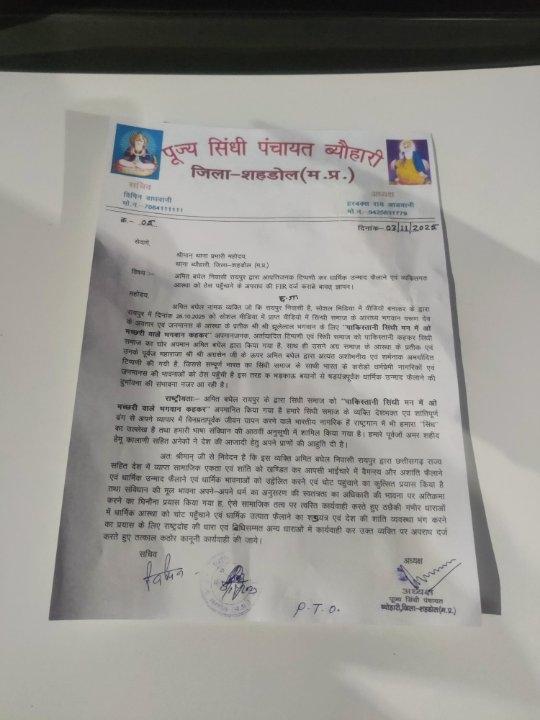 पूज्य सिंधी पंचायत ब्यौहारी
जिला-शहडोल(म.प्र.)
सचिव
विपिन वाधवानी
मो.न.-7684111111
अध्यक्ष
हरबक्स राय आडवानी
मो.न.-9425831779
क.- 05
दिनांक- 03/11/2025
सेवामें,
श्रीमान् थाना प्रभारी महोदय,
थाना ब्यौहारी, जिला-शहडोल (म.प्र.)
विषय :- अमित बघेल निवासी रायपुर द्वारा आपत्तिजनक टिप्पणी कर धार्मिक उन्माद फैलाने एवं व्यक्तिगत
आस्था को ठेस पहुँचाने के अपराध की FIR दर्ज कराने बाबत् ज्ञापन।
महोदय,
अमित बघेल नामक व्यक्ति जो कि रायपुर निवासी है, सोशल मिडिया में वीडियो बनाकर के द्वारा
रायपुर में दिनांक 26.10.2025 को सोशल मिडिया में प्राप्त वीडियो में सिन्धी समाज के आराध्य भगवान वरूण देव
के अवतार एवं जनमानस के आस्था के प्रतीक श्री श्री झूलेलाल भगवान के लिए "पाकिस्तानी सिंधी मन में ओ
मच्छरी वाले भगवान कहकर" अपमानजनक, अमर्यादित टिप्पणी एवं सिंधी समाज को पाकिस्तानी कहकर सिंधी
समाज का घोर अपमान अमित बघेल द्वारा किया गया है, साथ ही उसने अग्र समाज के आस्था के प्रतीक एवं
उनके पूर्वज महाराजा श्री श्री अग्रसेन जी के ऊपर अमित बघेल द्वारा अत्यंत अशोभनीय एवं शर्मनाक अमर्यादित
टिप्पणी की गयी है, जिससे सम्पूर्ण भारत का सिंधी समाज के साथी भारत के करोड़ो धर्मप्रेमी नागरिकों एवं
जनमानस की भावनाओं को ठेस पहुँची है इस तरह के भड़काऊ बयानो से षड़यंत्रपूर्वक धार्मिक उन्माद फैलाने की
दुर्भावना की संभावना नजर आ रही है।
राष्ट्रीयताः- अमित बघेल रायपुर के द्वारा सिंधी समाज को "पाकिस्तानी सिंधी मन में ओ
मच्छरी वाले भगवान कहकर" अपमानित किया गया है हमारे सिंधी समाज के व्यक्ति देशभक्त एवं शांतिपूर्ण
ढंग से अपने व्यापार में विनम्रतापूर्वक जीवन यापन करने वाले भारतीय नागरिक हैं राष्ट्रगान में भी हमारा "सिंध"
का उल्लेख है तथा हमारी भाषा संविधान की आठवीं अनुसूची में शामिल किया गया है। हमारे पूर्वजो अमर शहीद
हेमू कालाणी सहित अनेको ने देश की आजादी हेतु अपने प्राणों की आहुति दी है।
अतः श्रीमान् जी से निवेदन है कि इस व्यक्ति अमित बघेल निवासी रायपुर द्वारा छत्तीसगढ़ राज्य
सहित देश में व्याप्त सामाजिक एकता एवं शांति को खण्डित कर आपसी भाईचारे में वैमनस्य और अशांति फैलाने
एवं धार्मिक उन्माद फैलाने एवं धार्मिक भावनाओं को उद्वेलित करने एवं चोट पहुंचाने का कुत्सित प्रयास किया है
तथा संविधान की मूल भावना अपने-अपने धर्म का अनुसरण की स्वतंत्रता का अधिकारी की भावना पर अतिक्रमण
करने का घिनौना प्रयास किया गया है, ऐसे सामाजिक तत्व पर त्वरित कार्यवाही करते हुए गंभीर धाराओं
में धार्मिक आस्था को चोट पहुँचाने एवं धार्मिक उत्पात फैलाने का एवं देश की शांति व्यवस्था भंग करने
का प्रयास के लिए राष्ट्रद्रोह की धारा एवं विधिसम्मत अन्य धाराओं में कार्यवाही कर उक्त व्यक्ति पर अपराध दर्ज
करते हुए तत्काल कठोर कानूनी कार्यवाही की जाये।
सचिव
अध्यक्ष
अध्यक्ष
पूज्य सिंधी पंचायत
ब्योहारी,जिला-शहडोल(म.प्र.)
P.T.O.